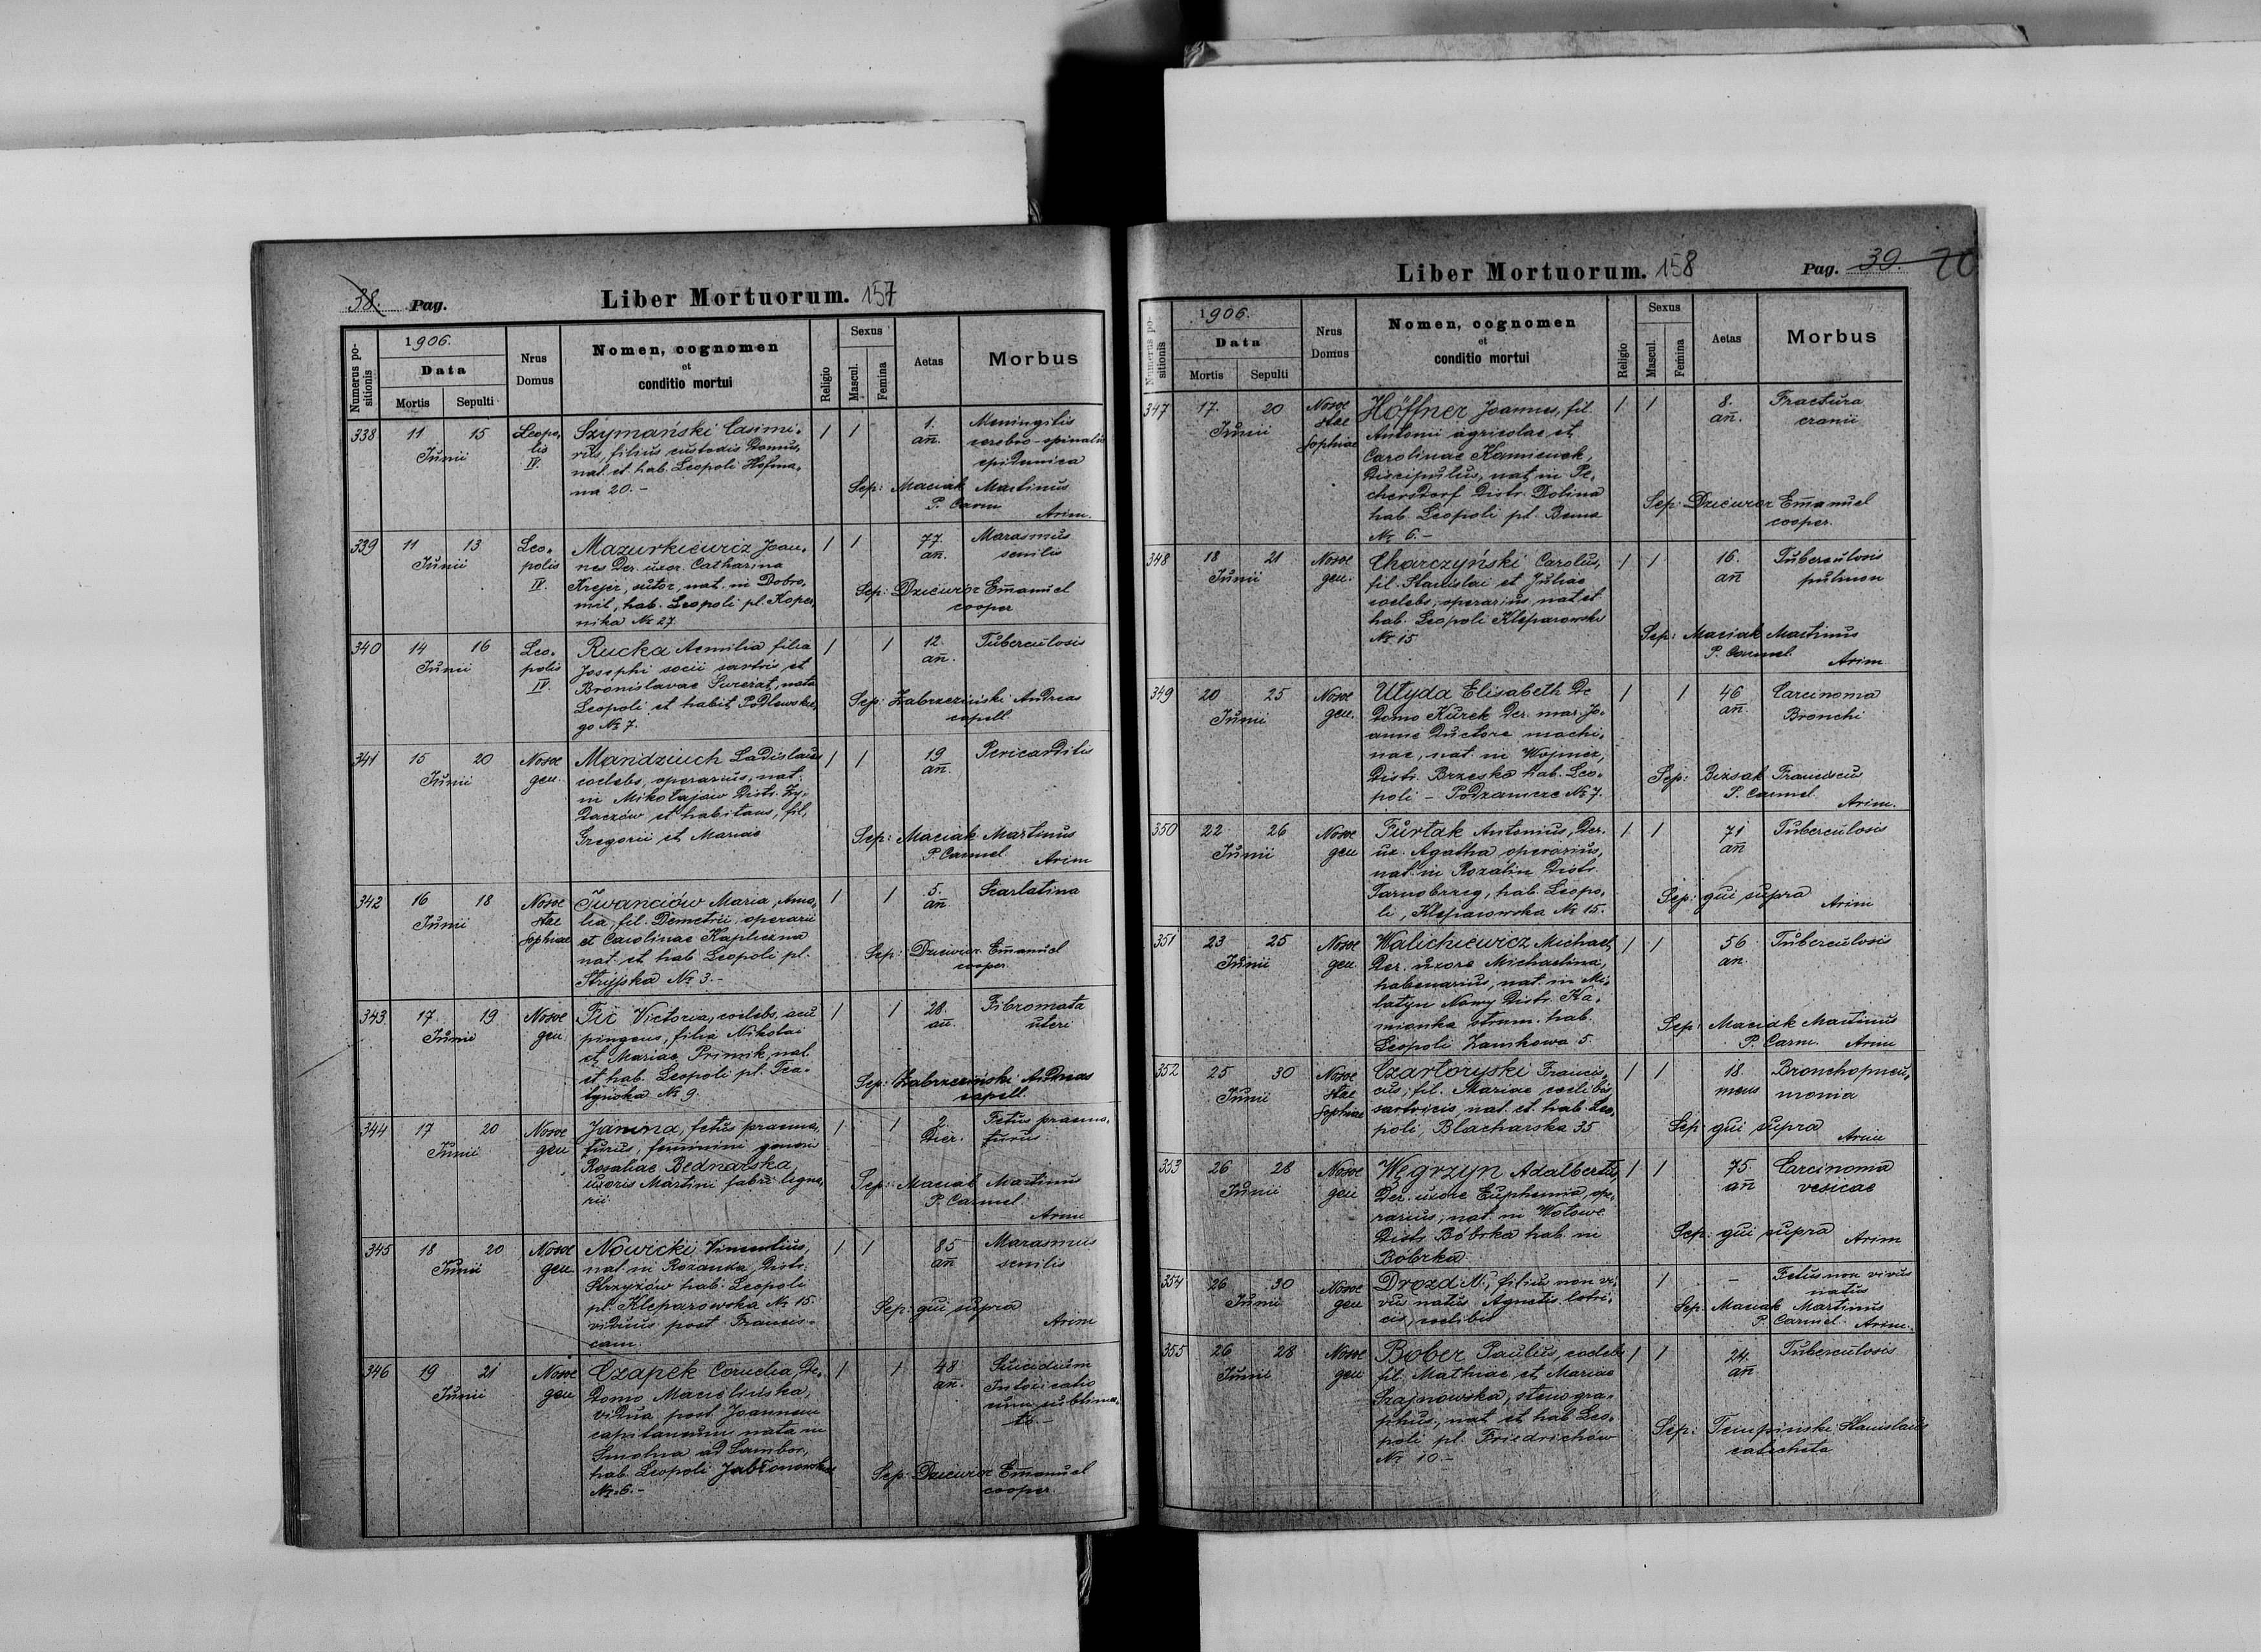 38. Pag. Liber Mortuorum. 157
Numerus positionis
1906.
Data
Mortis Sepulti
Nrus Domus
Nomen, cognomen
et
conditio mortui
Religio
Sexus
Mascul. Femina
Aetas
Morbus
338 11 15 Leopo, Szymański Casimi- 1 1 1. Meningitis
Junii lis rus, filius custodis domus, an. cerebro-spinalis
IV. nat. et hab. Leopoli Hofma- epidemica
na 20.- Sep: Maciak Martinus
P. Carm. Arim.
339 11 13 Leo- Mazurkiewicz Joan- 1 1 77. Marasmus
Junii polis nes Der. uxor. Catharina an. senilis
IV. Krejer, sutor, nat. in Dobro, Sep: Dziewior Emanuel
mil, hab. Leopoli pl. Koper, cooper
nika No 27
340 14 16 Leo- Rucka Aemilia filia 1 1 12. Tuberculosis
Junii polis Josephi socii sartris et an.
IV. Bronislavae Swierat, nata
Leopoli et habit. Podlewskie, Sep: Zabrzeziński Andreas
go No 7. capell.
341 15 20 Nosoc Mandziuch Ladislaus 1 1 19 Pericarditis
Junii gen. coelebs, operarius, nat. an.
in Mikołajów Distr. Ży-
daczów et habitans, fil,
Gregorii et Mariae Sep: Maciak Martinus
P. Carmel Arim
342 16 18 Nosoc Iwanciów Maria, Ama- 1 1 5. Scarlatina
Junii Stae lia, fil. Demetrii, operarii an.
Sophiae et Carolinae Kapliczna Sep: Dziewior Emanuel
nat. et hab Leopoli pl. cooper.
Stryjska No 3.-
343 17 19 Nosoc Fic Victoria, coelebs, acu 1 1 28. Fibromata
Junii gen. pingens, filia Nikolai an. uteri
et Mariae Primik, nat.
et hab. Leopoli pl. Tea- Sep: Zabrzeziński Andreas
tyńska No 9. capell.
344 17 20 Nosoc Janina, fetus praema, 1 1 2. Fetus praema-
Junii gen turus, feminini generis Dier. turus
Rosaliae Bednarska,
uxoris Martini fabri ligna, Sep: Maciak Martinus
rii P. Carmel
Arim
345 18 20 Nosoc Nowicki Vincentius, 1 1 85 Marasmus
Junii gen. nat. in Rozanka, Distr. an senilis
Strzyżów hab. Leopoli
pl. Kleparowska No 15. Sep: qui supra
viduus post Francis- Arim
cam.
346 19 21 Nosoc Czapek Cornelia, De- 1 1 48 Suicidium
Junii gen Domo Macielinska, an. Intoxicatio
vidua post Joannem cum sublima-
capitaneum nata in to.-
Smolna ad Sambor,
hab. Leopoli Jabłonowska Sep: Dziewior Emanuel
No 6.- cooper.
Liber Mortuorum. 158 Pag. 39.
Numerus positionis
1906.
Data
Mortis Sepulti
Nrus Domus
Nomen, cognomen
et
conditio mortui
Religio
Sexus
Mascul. Femina
Aetas
Morbus
347 17. 20 Nosoc Höffner Joannes, fil. 1 1 8. Fractura
Junii Stae Antonii agricolae et an. cranii
Sophiae Carolinae Kamienek,
Discipulus, nat. in Pe-
chersdorf Distr. Dolina Sep: Dziewior Emanuel
hab. Leopoli pl. Bema cooper.
No 6.-
348 18 21 Nosoc Charczyński Carolus, 1 1 16. Tuberculosis
Junii gen. fil. Stanislai et Juliae an pulmon
coelebs, operarius, nat et
hab. Leopoli Kleparowska Sep: Maciak Martinus
No 15 P. Carmel. Arim
349 20 25 Nosoc Utyda Elisabeth De 1 1 46 Carcinoma
Junii gen. Domo Kurek Der. mar. Jo- an. Bronchi
anne Ductore machi-
nae, nat. in Wojnicz,
Distr. Brzesko hab. Leo- Sep: Bizsak Franciscus
poli - Podzamcze No 7. P. Carmel Arim.
350 22 26 Nosoc Furtak Antonius, Der. 1 1 71 Tuberculosis
Junii gen ux. Agatha operarius, an
nat. in Rozalin Distr.
Tarnobrzeg, hab. Leopo, Sep: qui supra
li, Kleparowska No 15. Arim
351 23 25 Nosoc Walichiewicz Michael, 1 1 56 Tuberculosis
Junii gen Der. uxore Michaelina, an.
habenarius, nat. in Mi-
latyn Nowy Distr. Ka-
mionka strum. hab. Sep: Maciak Martinus
Leopoli Zamkowa 5. P. Carm. Arim
352 25 30 Nosoc Czartoryski Francis- 1 1 18. Bronchopneu,
Junii Stae cus, fil. Mariae coelibis mens monia
Sophiae sartricis, nat. et hab. Leo, Sep: qui supra
poli, Blacharska 35 Arim
353 26 28 Nosoc Węgrzyn Adalbertus, 1 1 75. Carcinoma
Junii gen Der. uxore Euphemia, ope- an vesicae
rarius, nat. in Wołowe
Distr. Bóbrka hab. in Sep: qui supra
Bóbrka Arim
354 26 30 Nosoc Drozd N., filius non vi- 1 - Fetus non vivus
Junii gen vus natus Agnetis lotri- natus
cis, coelibis Sep. Maciak Martinus
P. Carmel. Arim.
355 26 28 Nosoc Bober Paulus, coelebs 1 1 24. Tuberculosis
Junii gen fil. Mathiae et Mariae an
Szajnowska, stenogra-
phus, nat et hab. Leo- Sep: Tempinski Stanislaus
poli pl. Friedrichów catecheta
No 10-